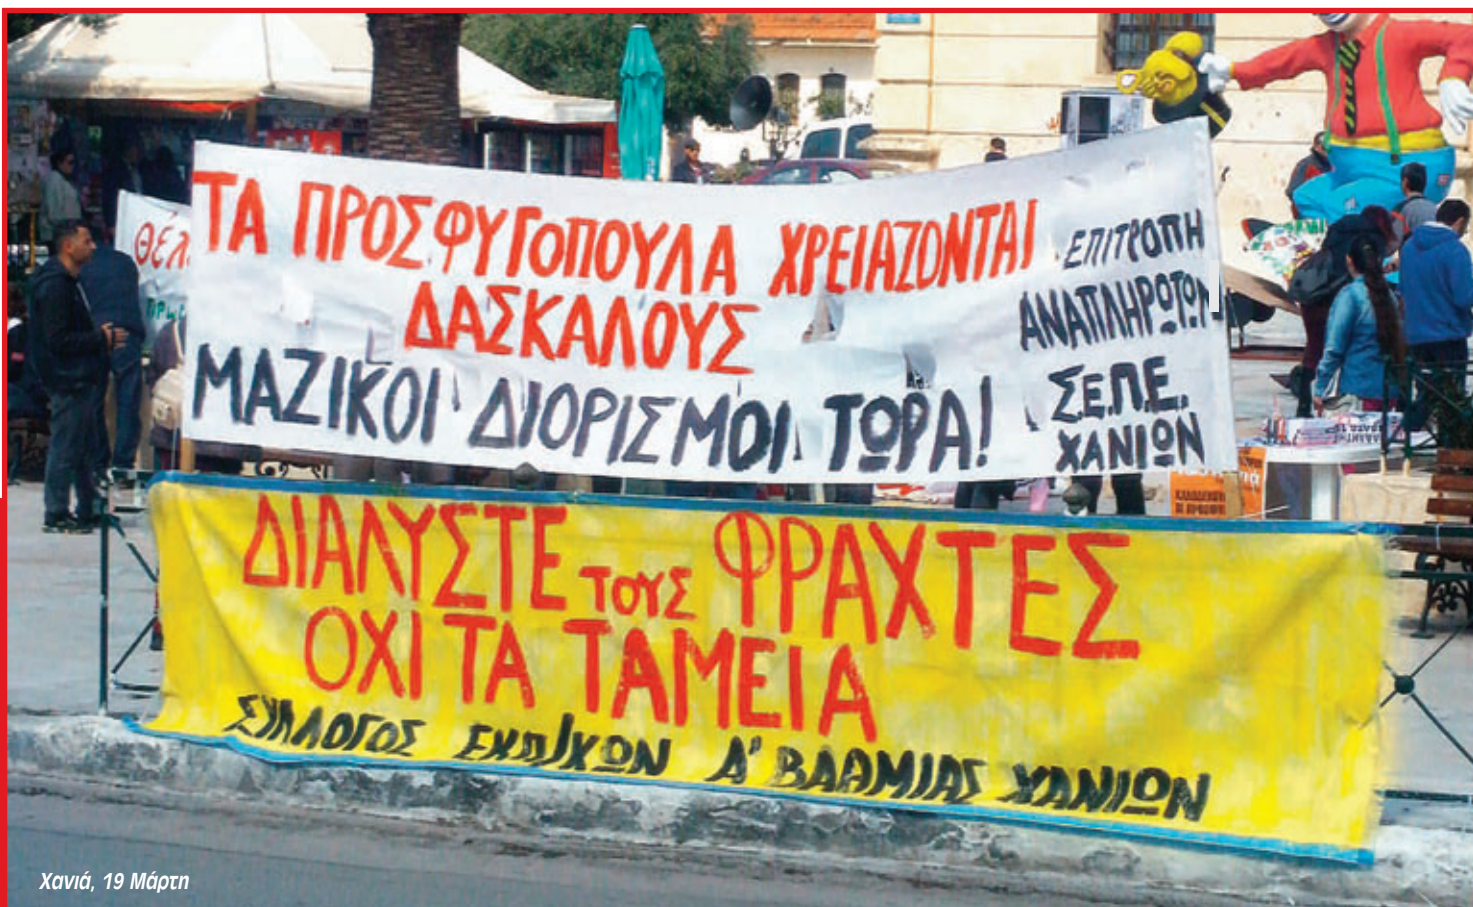 ΤΑ ΠΡΟΣΦΥΓΟΠΟΥΛΑ ΧΡΕΙΑΖΟΝΤΑΙ
ΔΑΣΚΑΛΟΥΣ
ΜΑΖΙΚΟΙ ΔΙΟΡΙΣΜΟΙ ΤΩΡΑ!
ΕΠΙΤΡΟΠΗ
ΑΝΑΠΛΗΡΩΤΩΝ
Σ.Ε.Π.Ε.
ΧΑΝΙΩΝ
ΔΙΑΛΥΣΤΕ ΤΟΥΣ ΦΡΑΧΤΕΣ
ΟΧΙ ΤΑ ΤΑΜΕΙΑ
ΣΥΛΛΟΓΟΣ ΕΚΠ/ΚΩΝ Α' ΒΑΘΜΙΑΣ ΧΑΝΙΩΝ
Χανιά, 19 Μάρτη